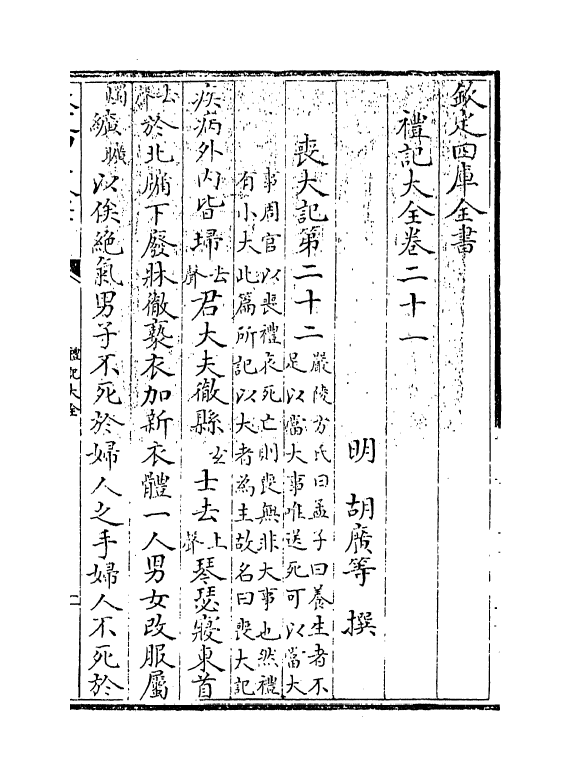 欽定四庫全書
禮記大全卷二十一
明 胡廣等 撰
喪大記第二十二 嚴陵方氏曰孟子曰養生者不
足以當大事唯送死可以當大
事周官以喪禮哀死亡則喪無非大事也然禮
有小大此篇所記以大者為主故名曰喪大記
疾病外内皆埽去聲君大夫徹縣玄士去上聲琴瑟寢東首
去聲於北牖下廢牀徹褻衣加新衣體一人男女改服屬
燭纊曠以俟絶氣男子不死於婦人之手婦人不死於
禮記大全